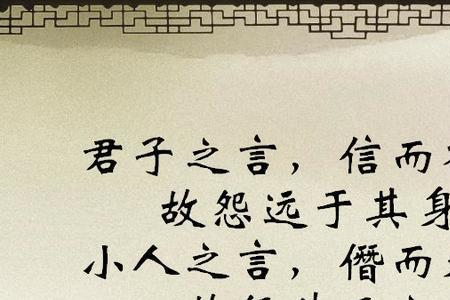 君子之言，信而
故怨远于其身
小人之言，僭而